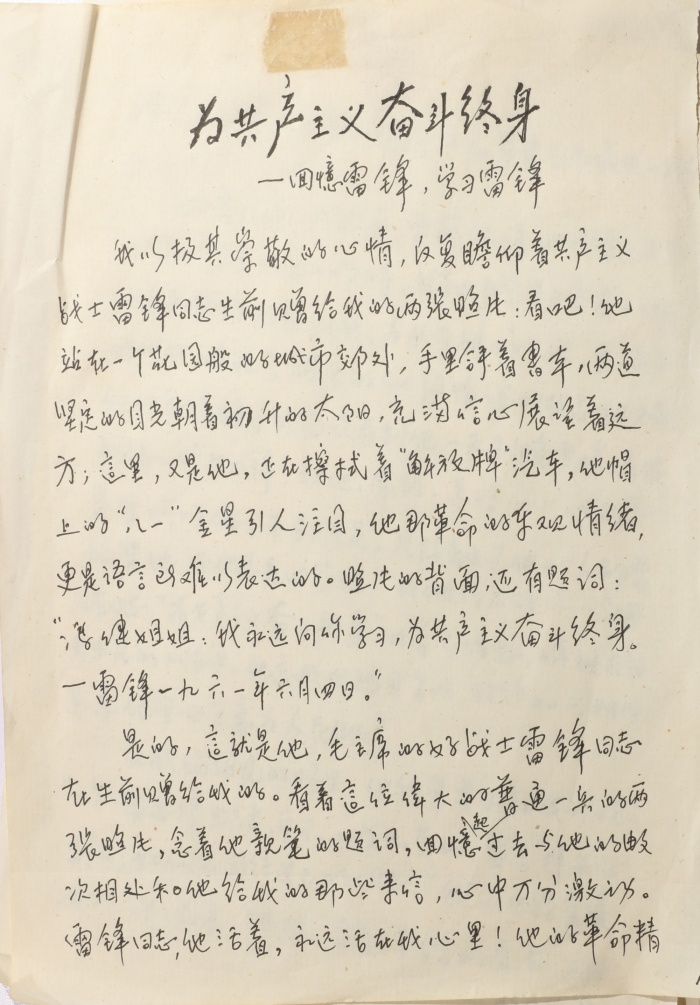 为共产主义奋斗终身
—回憶雷锋，学习雷锋
我以极其崇敬的心情，反复瞻仰着共产主义
战士雷锋同志生前贝曾给我的两張照片：看吧！他
站在一个花园般的城市郊外，手里捧着書本，两道
坚定的目光朝着初升的太阳，充满信心展望着远
方；這里，又是他，正在擦拭着“解放牌”汽车，他帽
上的“八一”金星引人注目，他那革命的乐观情绪，
更是语言所难以表达的。照片的背面，还有题词：
“冯健姐姐：我永远向你学习，为共产主义奋斗终身。
—雷锋一九六一年六月四日。”
是的，這就是他，毛主席的好战士雷锋同志
在生前贈给我的。看着這位偉大的普通一兵的两
張照片，念着他親笔的题词，回憶起过去与他的数
次相处和他给我的那些来信，心中万分激动。
雷锋同志，他活着，永远活在我心里！他的革命精